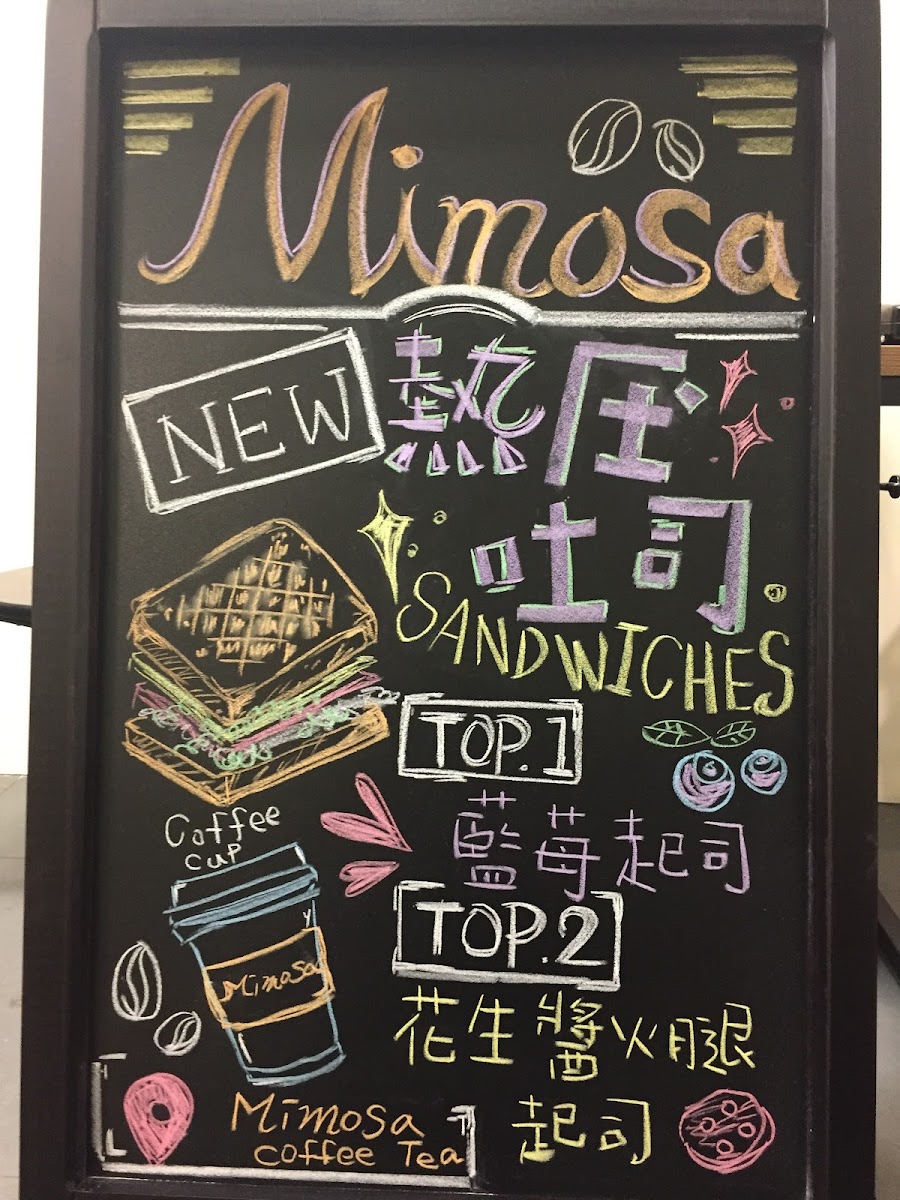 Mimosa
NEW
熱压
吐司
SANDWICHES
TOP.1
藍莓起司
Coffee
cup
TOP.2
Mimosa
花生醬火腿
起司
Mimosa
coffee Tea